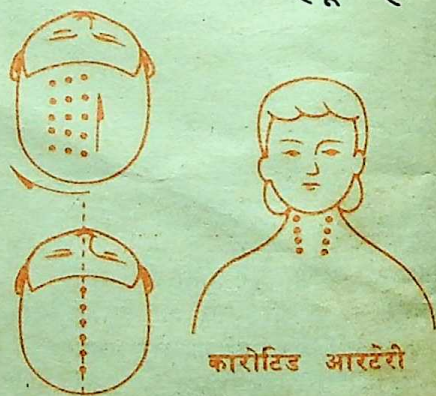 कारोटिड आरटेरी